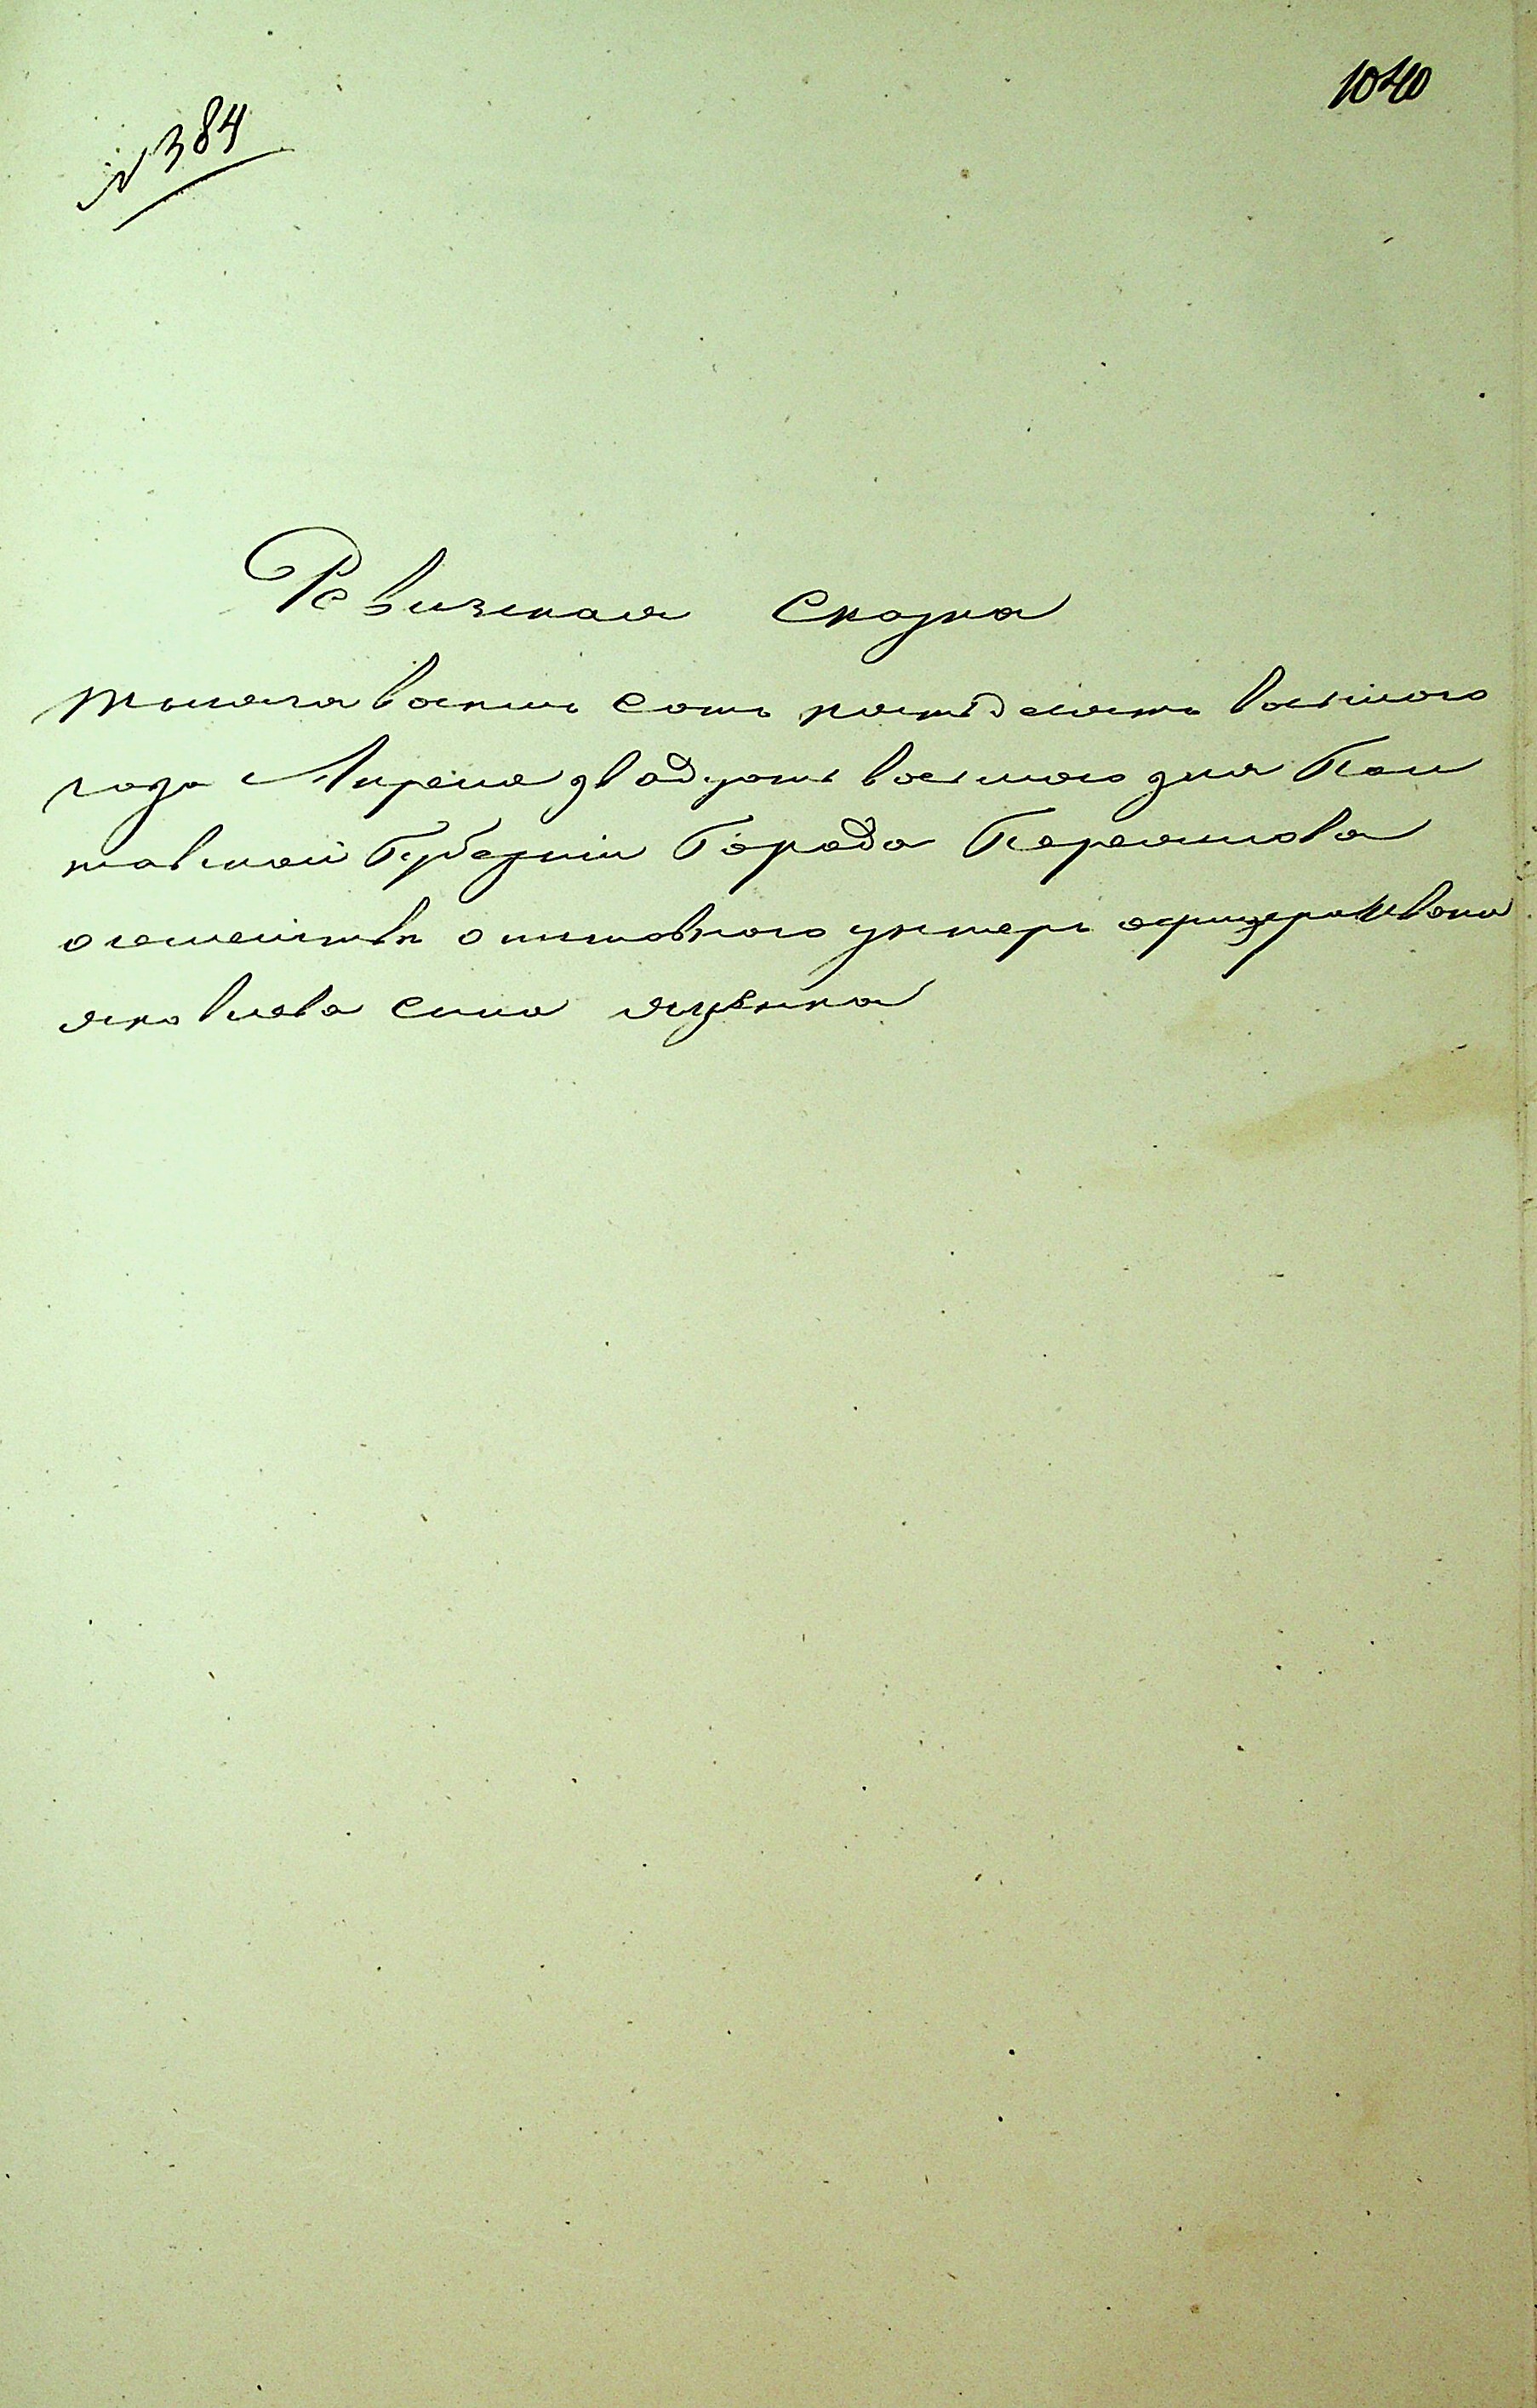 1040
№ 384
Ревизская Сказка
тысяча восемь сотъ пятьдесятъ восьмого
года Апреля двадцять восьмого дня Пол
тавской Губерніи Города Переяслова
о семействѣ отставного унтеръ офицера Ивана
яковлева сина яценка